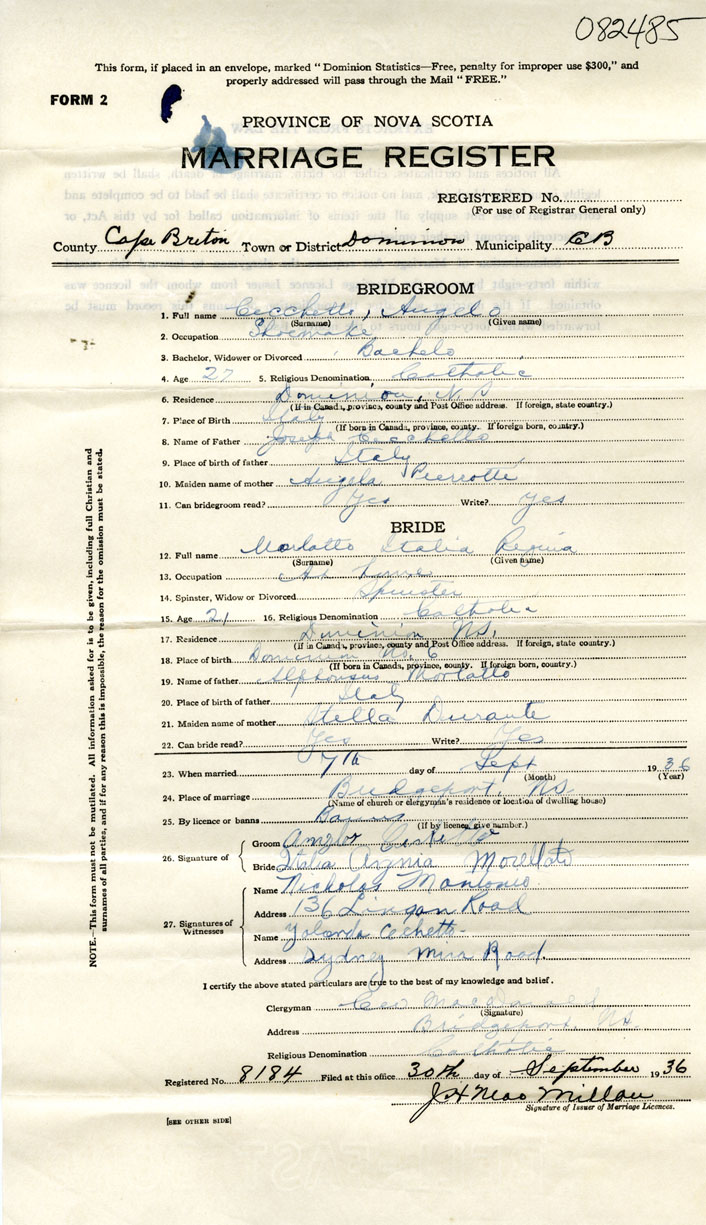 082485
This form, if placed in an envelope, marked "Dominion Statistics—Free, penalty for improper use $300," and
properly addressed will pass through the Mail "FREE."
FORM 2
PROVINCE OF NOVA SCOTIA
MARRIAGE REGISTER
REGISTERED No.
(For use of Registrar General only)
County Cape Breton Town or District Dominion Municipality CB
BRIDEGROOM
1. Full name Cecchetto, Angelo
(Surname) (Given name)
2. Occupation Shoemake
3. Bachelor, Widower or Divorced Bachelo
4. Age 27 5. Religious Denomination Catholic
6. Residence Dominion, N S
(If in Canada, province, county and Post Office address. If foreign, state country.)
7. Place of Birth Italy
(If born in Canada, province, county. If foreign born, country.)
8. Name of Father Joseph Cecchetto
9. Place of birth of father Italy
10. Maiden name of mother Angela
11. Can bridegroom read? Yes Write? Yes
BRIDE
12. Full name Morlatto Italia Regina
(Surname) (Given name)
13. Occupation At Home
14. Spinster, Widow or Divorced Spinster
15. Age 21 16. Religious Denomination Catholic
17. Residence Dominion NS,
(If in Canada, province, county and Post Office address. If foreign, state country.)
18. Place of birth Dominion No. 6
(If born in Canada, province, county. If foreign born, country.)
19. Name of father Alphonsus Morlatto
20. Place of birth of father Italy
21. Maiden name of mother Stella Durante
22. Can bride read? Yes Write? Yes
23. When married 7th day of Sept 1936
(Month) (Year)
24. Place of marriage Bridgeport, NS
(Name of church or clergyman's residence or location of dwelling house)
25. By licence or banns Banns
(If by licence, give number.)
26. Signature of
Groom Angelo
Bride Italia Morellato
27. Signatures of Witnesses
Name Nicholas
Address 136 Lingan Road
Name Yolanda Cechetto
Address Sydney Mira Road.
I certify the above stated particulars are true to the best of my knowledge and belief.
Clergyman Geo MacDonald
(Signature)
Address Bridgeport, NS.
Religious Denomination Catholic
Registered No. 8184 Filed at this office 30th day of September 1936
J H MacMillan
Signature of Issuer of Marriage Licences.
[SEE OTHER SIDE]
NOTE.—This form must not be mutilated. All information asked for is to be given, including full Christian and
surnames of all parties, and if for any reason this is impossible, the reason for the omission must be stated.